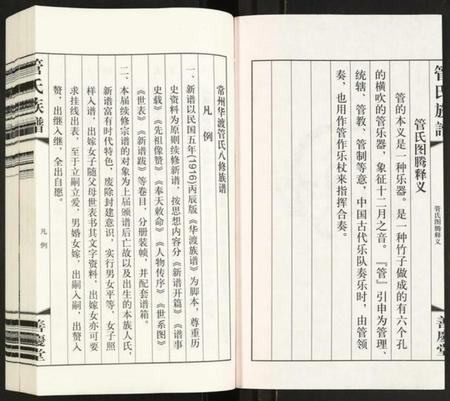 管氏族譜
管氏图腾释义
善慶堂
管氏图腾释义
管的本义是一种乐器。是一种竹子做成的有六个孔
的横吹的管乐器，象征十二月之音。『管』引申为管理、
统辖、管教、管制等意，中国古代乐队奏乐时，由管领
奏，也用作管作乐杖来指挥合奏。
常州华渡管氏八修族谱
凡例
一、新谱以民国五年(1916)丙辰版《华渡族谱》为脚本，尊重历
史资料为原则续修新谱，按思想内容分《新谱开篇》《谱事
史载》《先祖像赞》《奉天敕命》《人物传序》《世系图》
《世表》《新谱跋》等卷目，分册装帧，并配套谱箱。
二、本届续修宗谱的对象为上届颁谱后亡故以及出生的本族人氏，
新谱富有时代特色，废除封建意识，实行男女平等，女子照
样入谱，出嫁女子随父母世表书其文字资料，出嫁女亦可要
求挂线出表，至于立嗣立爱，男婚女嫁，出嗣入嗣，出赘入
赘，出继入继，全出自愿。
管氏族譜
凡例
善慶堂